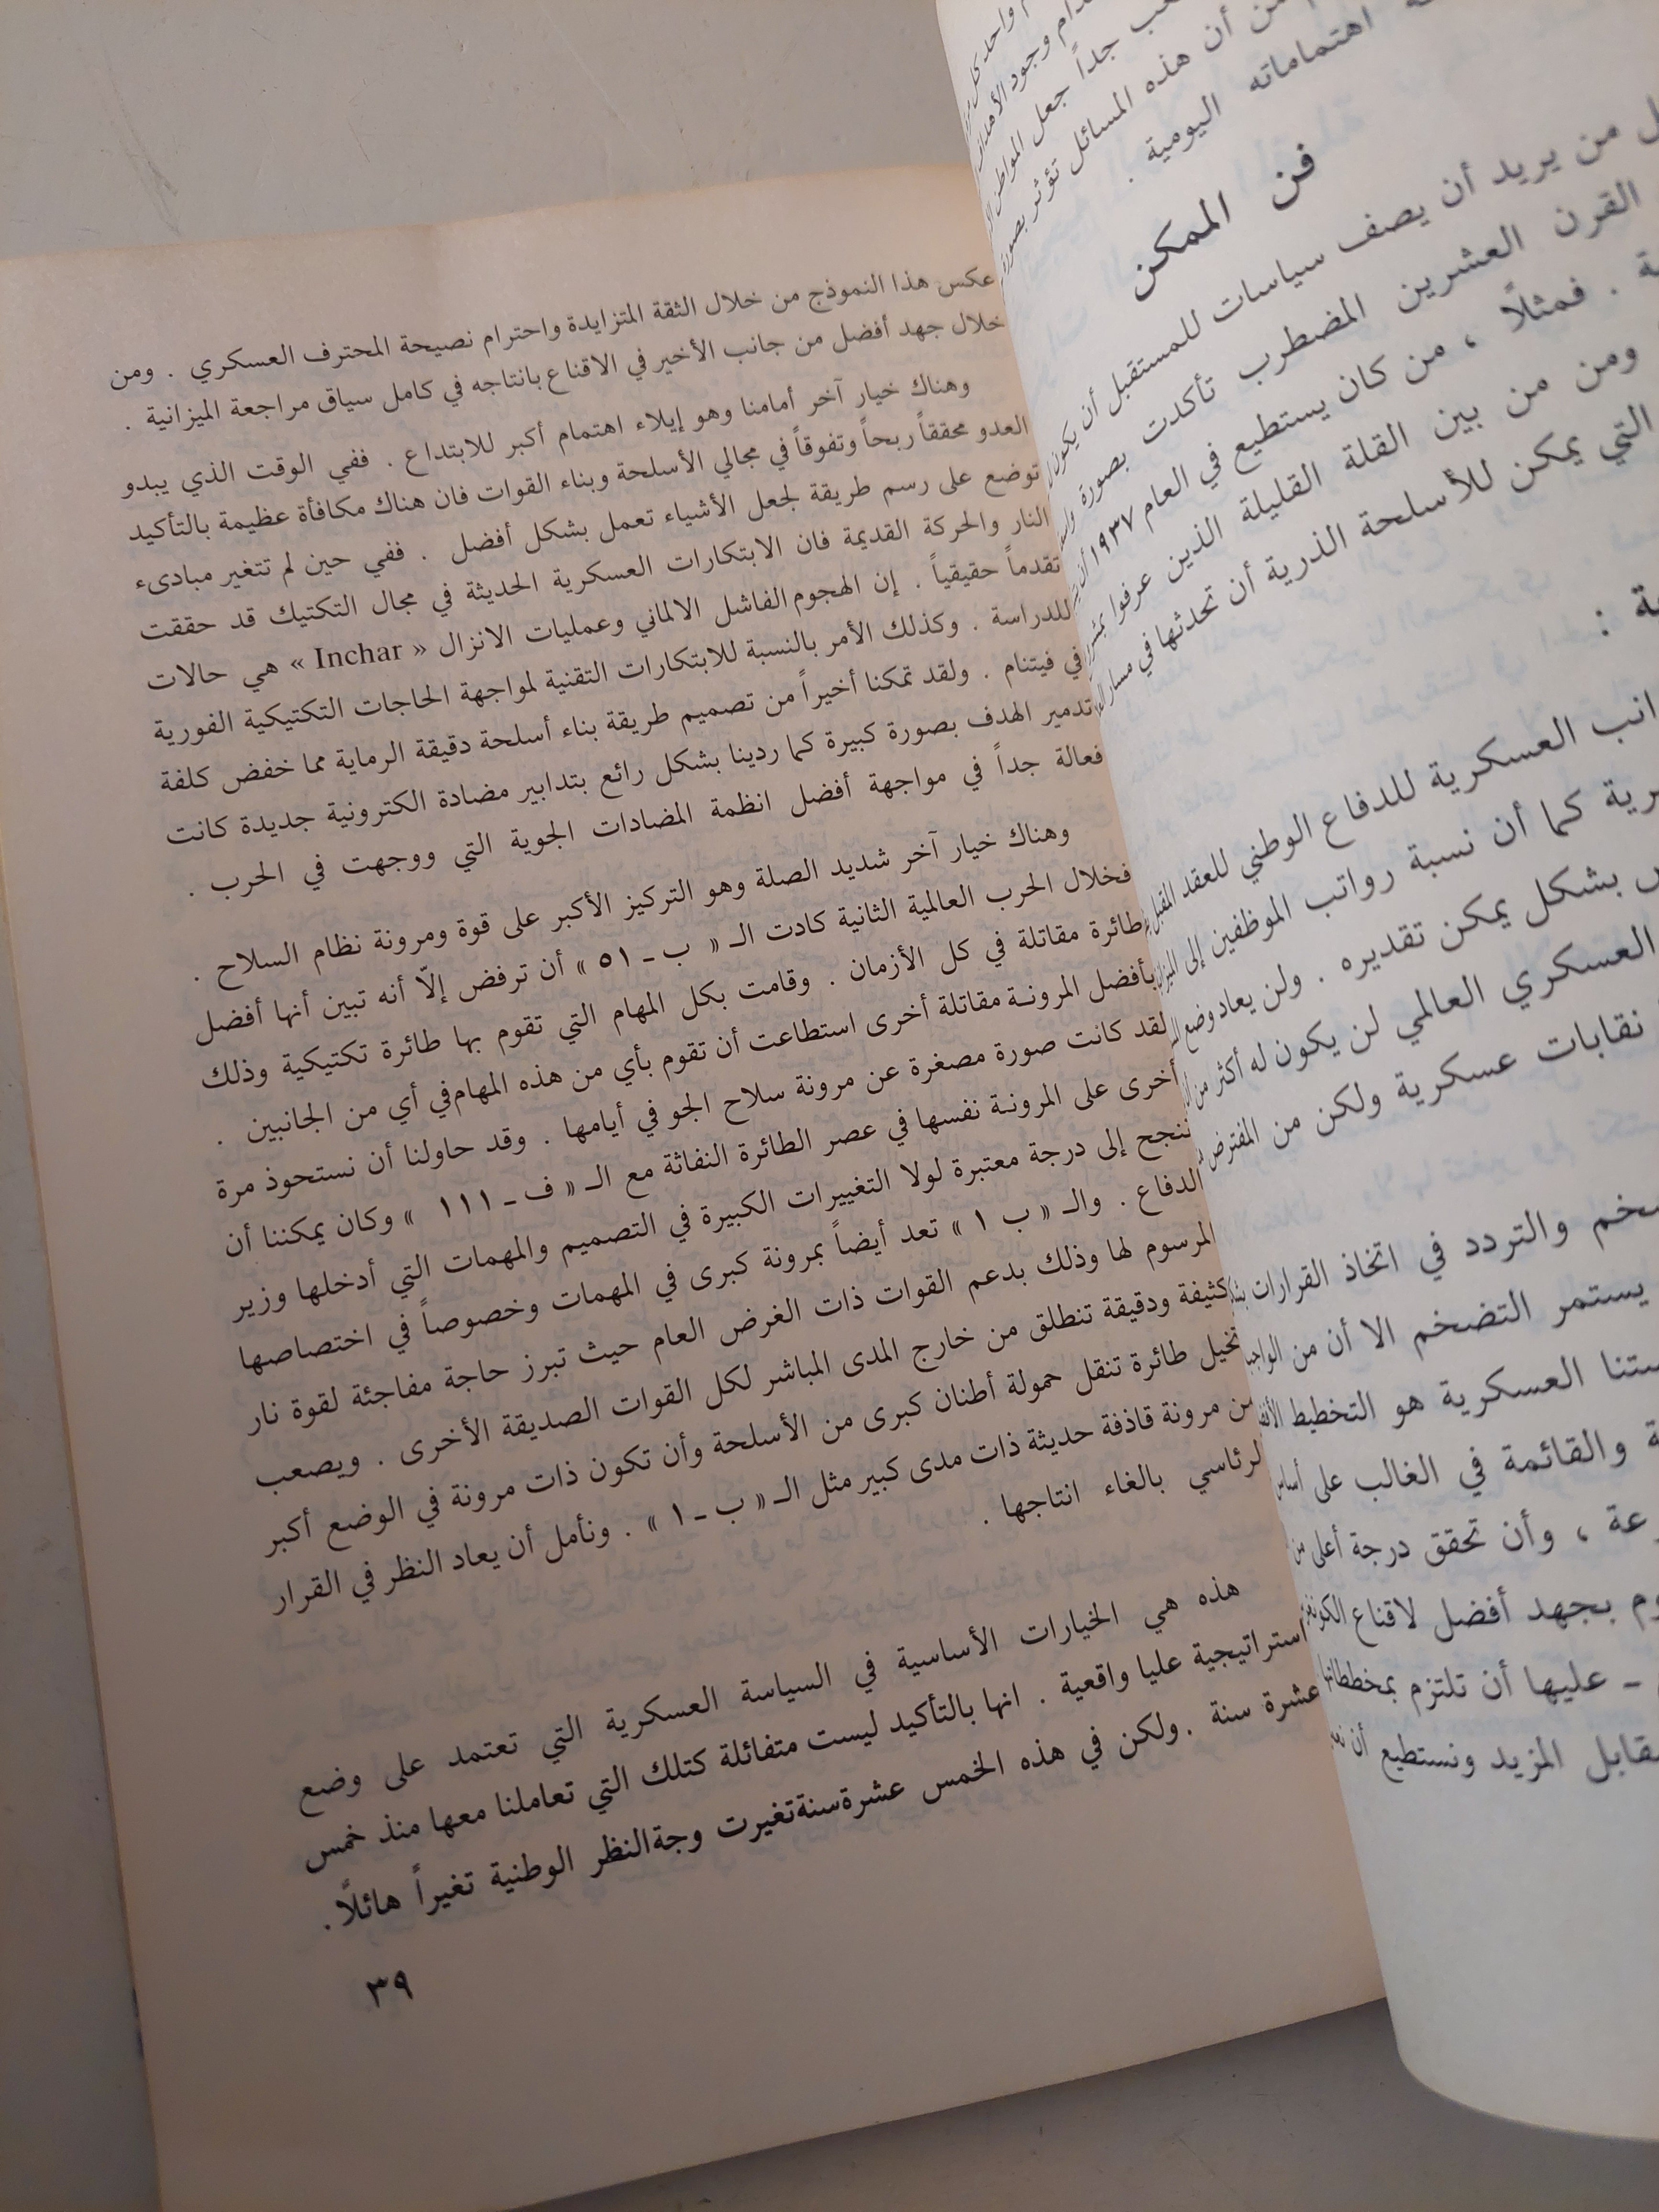 اهتماماته اليومية .
من أن هذه المسائل تؤثر بصورة
فن الممكن
من يريد أن يصف سياسات للمستقبل أن يكون
القرن العشرين المضطرب تأكدت بصورة
. فمثلاً ، من كان يستطيع في العام ١٩٣٧ أن
ومن من بين القلة القليلة الذين عرفوا
التي يمكن للأسلحة الذرية أن تحدثها في مسار
العسكرية للدفاع الوطني للعقد المقبل
كما أن نسبة رواتب الموظفين إلى
بشكل يمكن تقديره . ولن يعاد وضع
العسكري العالمي لن يكون له أكثر من
نقابات عسكرية ولكن من المفترض
والتردد في اتخاذ القرارات
يستمر التضخم الا أن من
العسكرية هو التخطيط
والقائمة في الغالب على أساس
، وأن تحقق درجة أعلى من
بجهد أفضل لاقناع
– عليها أن تلتزم
المزيد ونستطيع أن
عكس هذا النموذج من خلال الثقة المتزايدة واحترام نصيحة المحترف العسكري . ومن
خلال جهد أفضل من جانب الأخير في الاقناع بانتاجه في كامل سياق مراجعة الميزانية .
وهناك خيار آخر أمامنا وهو إيلاء اهتمام أكبر للابتداع . ففي الوقت الذي يبدو
العدو محققاً ربحاً وتفوقاً في مجالي الأسلحة وبناء القوات فان هناك مكافأة عظيمة بالتأكيد
توضع على رسم طريقة لجعل الأشياء تعمل بشكل أفضل . ففي حين لم تتغير مبادىء
النار والحركة القديمة فان الابتكارات العسكرية الحديثة في مجال التكتيك قد حققت
تقدماً حقيقياً . إن الهجوم الفاشل الالماني وعمليات الانزال « Inchar » هي حالات
للدراسة . وكذلك الأمر بالنسبة للابتكارات التقنية لمواجهة الحاجات التكتيكية الفورية
في فيتنام . ولقد تمكنا أخيراً من تصميم طريقة بناء أسلحة دقيقة الرماية مما خفض كلفة
تدمير الهدف بصورة كبيرة كما ردينا بشكل رائع بتدابير مضادة الكترونية جديدة كانت
فعالة جداً في مواجهة أفضل انظمة المضادات الجوية التي ووجهت في الحرب .
وهناك خيار آخر شديد الصلة وهو التركيز الأكبر على قوة ومرونة نظام السلاح .
فخلال الحرب العالمية الثانية كادت الـ « ب ـ ٥١ » أن ترفض إلّا أنه تبين أنها أفضل
طائرة مقاتلة في كل الأزمان . وقامت بكل المهام التي تقوم بها طائرة تكتيكية وذلك
بأفضل المرونة مقاتلة أخرى استطاعت أن تقوم بأي من هذه المهام في أي من الجانبين .
لقد كانت صورة مصغرة عن مرونة سلاح الجو في أيامها . وقد حاولنا أن نستحوذ مرة
أخرى على المرونة نفسها في عصر الطائرة النفاثة مع الـ « ف ـ ١١١ » وكان يمكننا أن
ننجح إلى درجة معتبرة لولا التغييرات الكبيرة في التصميم والمهمات التي أدخلها وزير
الدفاع . والـ « ب ١ » تعد أيضاً بمرونة كبرى في المهمات وخصوصاً في اختصاصها
المرسوم لها وذلك بدعم القوات ذات الغرض العام حيث تبرز حاجة مفاجئة لقوة نار
كثيفة ودقيقة تنطلق من خارج المدى المباشر لكل القوات الصديقة الأخرى . ويصعب
تخيل طائرة تنقل حمولة أطنان كبرى من الأسلحة وأن تكون ذات مرونة في الوضع أكبر
من مرونة قاذفة حديثة ذات مدى كبير مثل الـ « ب ـ ١ » . ونأمل أن يعاد النظر في القرار
الرئاسي بالغاء انتاجها .
هذه هي الخيارات الأساسية في السياسة العسكرية التي تعتمد على وضع
استراتيجية عليا واقعية . انها بالتأكيد ليست متفائلة كتلك التي تعاملنا معها منذ خمس
عشرة سنة . ولكن في هذه الخمس عشرة سنة تغيرت وجة النظر الوطنية تغيراً هائلًا .
٣٩